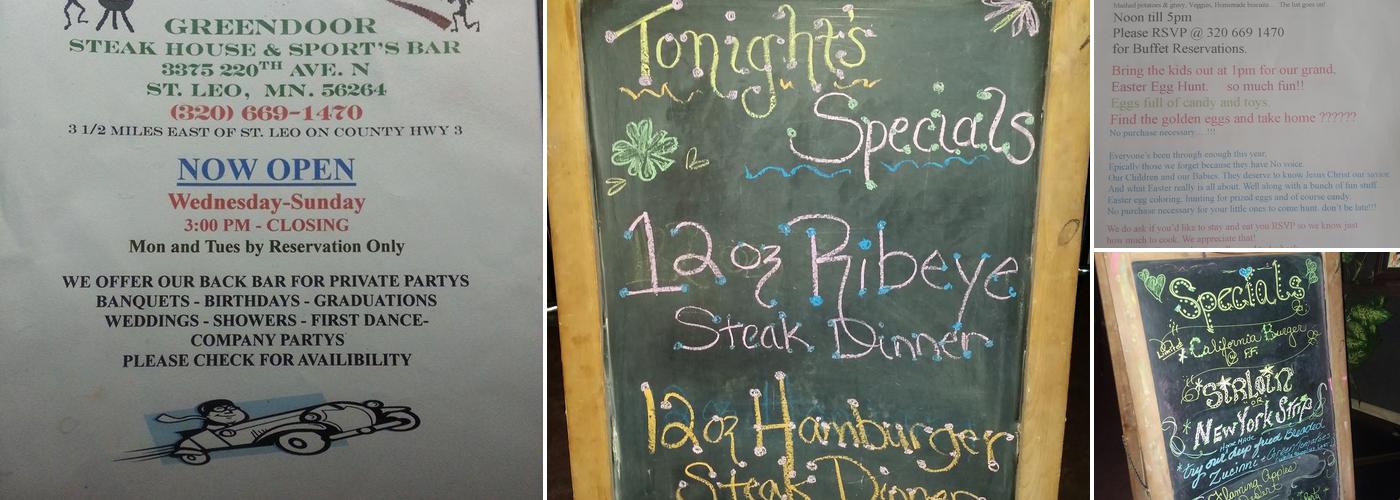 GREENDOOR
STEAK HOUSE & SPORT'S BAR
3375 220TH AVE. N
ST. LEO, MN. 56264
(320) 669-1470
3 1/2 MILES EAST OF ST. LEO ON COUNTY HWY 3
NOW OPEN
Wednesday-Sunday
3:00 PM - CLOSING
Mon and Tues by Reservation Only
WE OFFER OUR BACK BAR FOR PRIVATE PARTYS
BANQUETS - BIRTHDAYS - GRADUATIONS
WEDDINGS - SHOWERS - FIRST DANCE-
COMPANY PARTYS
PLEASE CHECK FOR AVAILIBILITY
Tonight's
Specials
12oz Ribeye
Steak Dinner
12oz Hamburger
Steak Dinner
Mashed potatoes & gravy, Veggies, Homemade biscuits... The list goes on!
Noon till 5pm
Please RSVP @ 320 669 1470
for Buffet Reservations.
Bring the kids out at 1pm for our grand,
Easter Egg Hunt. so much fun!!
Eggs full of candy and toys.
Find the golden eggs and take home ??????
No purchase necessary....!!!
Everyone's been through enough this year,
Epically those we forget because they have No voice.
Our Children and our Babies. They deserve to know Jesus Christ our savior.
And what Easter really is all about. Well along with a bunch of fun stuff...
Easter egg coloring, hunting for prized eggs and of course candy.
No purchase necessary for your little ones to come hunt. don't be late!!!
We do ask if you'd like to stay and eat you RSVP so we know just
how much to cook. We appreciate that!
Specials
California Burger
@ F.F.
STRLOiN
OR
NewYork Strip
Home Made
*try our deep fried Breaded
Zucinni + Green Tomatoes
Flaming Apples